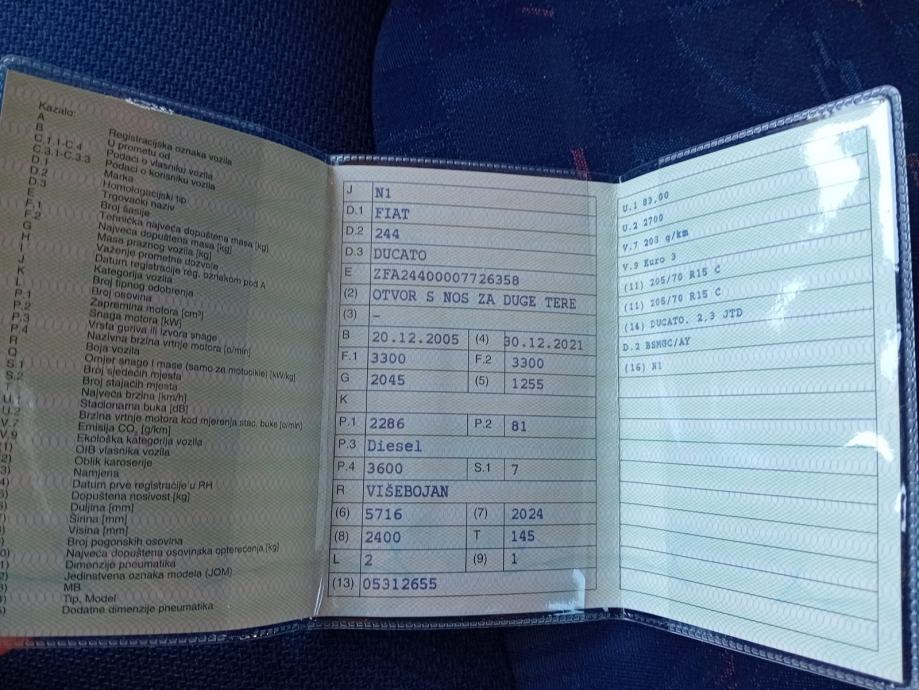 Kazalo:
A Registracijska oznaka vozila
B U prometu od
C.1.1-C.4 Podaci o vlasniku vozila
C.3.1-C.3.3 Podaci o korisniku vozila
D.1 Marka
D.2 Homologacijski tip
D.3 Trgovački naziv
E Broj šasije
F.1 Tehnička najveća dopuštena masa [kg]
F.2 Najveća dopuštena masa [kg]
G Masa praznog vozila [kg]
H Važenje prometne dozvole
I Datum registracije reg. oznakom pod A
J Kategorija vozila
K Broj tipnog odobrenja
L Broj osovina
P.1 Zapremina motora [cm³]
P.2 Snaga motora [kW]
P.3 Vrsta goriva ili izvora snage
P.4 Nazivna brzina vrtnje motora [o/min]
R Boja vozila
Q Omjer snage i mase (samo za motocikle) [kW/kg]
S.1 Broj sjedećih mjesta
S.2 Broj stajaćih mjesta
T Najveća brzina [km/h]
U.1 Stacionarna buka [dB]
U.2 Brzina vrtnje motora kod mjerenja stac. buke [o/min]
V.7 Emisija CO₂ [g/km]
V.9 Ekološka kategorija vozila
1) OIB vlasnika vozila
2) Oblik karoserije
3) Namjena
4) Datum prve registracije u RH
5) Dopuštena nosivost [kg]
6) Duljina [mm]
Širina [mm]
Visina [mm]
Broj pogonskih osovina
0) Najveća dopuštena osovinska opterećenja [kg]
1) Dimenzije pneumatika
2) Jedinstvena oznaka modela (JOM)
3) MB
4) Tip, Model
5) Dodatne dimenzije pneumatika
J N1
D.1 FIAT
D.2 244
D.3 DUCATO
E ZFA24400007726358
(2) OTVOR S NOS ZA DUGE TERE
(3) –
B 20.12.2005 (4) 30.12.2021
F.1 3300 F.2 3300
G 2045 (5) 1255
K
P.1 2286 P.2 81
P.3 Diesel
P.4 3600 S.1 7
R VIŠEBOJAN
(6) 5716 (7) 2024
(8) 2400 T 145
L 2 (9) 1
(13) 05312655
U.1 83.00
U.2 2700
V.7 203 g/km
V.9 Euro 3
(11) 205/70 R15 C
(11) 205/70 R15 C
(14) DUCATO, 2,3 JTD
D.2 BSMGC/AY
(16) N1